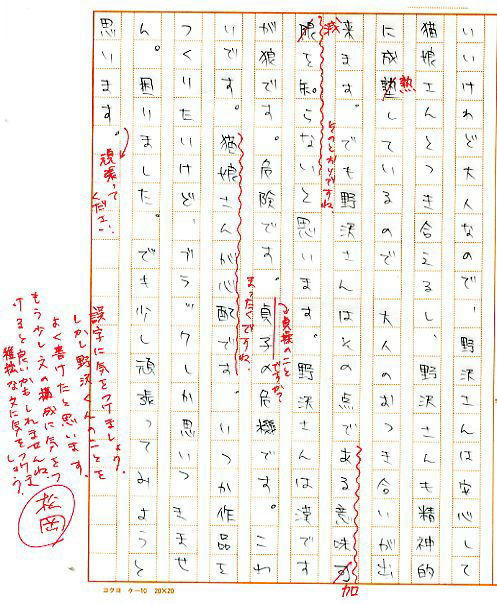 いいけれど大人なので、野沢さんは安心して
猫娘さんとつき合えるし、野沢さんも精神的
に成塾しているので、大人のおつき合いが出
熟
来ます。でも野沢さんはその点である意味可
加
そのとおりですね
を知らないと思います。野沢さんは漢です
が狼です。危険です。貞子の危機です。こわ
貞操のこと
ですか?
まったくですね。
いです。猫娘さんが心配です。いつか作品を
つくりたいけど、ブラックしか思いつきませ
ん。困りました。でも少し頑張ってみようと
思います。
頑張って
ください。
誤字に気をつけましょう。
しかし野沢くんのことを
よく書けたと思います。
もう少し文の構成に気をつ
けると良いかもしれませんね。
稚拙な文に気をつけましょう。
松岡
コクヨ ケー10 20×20